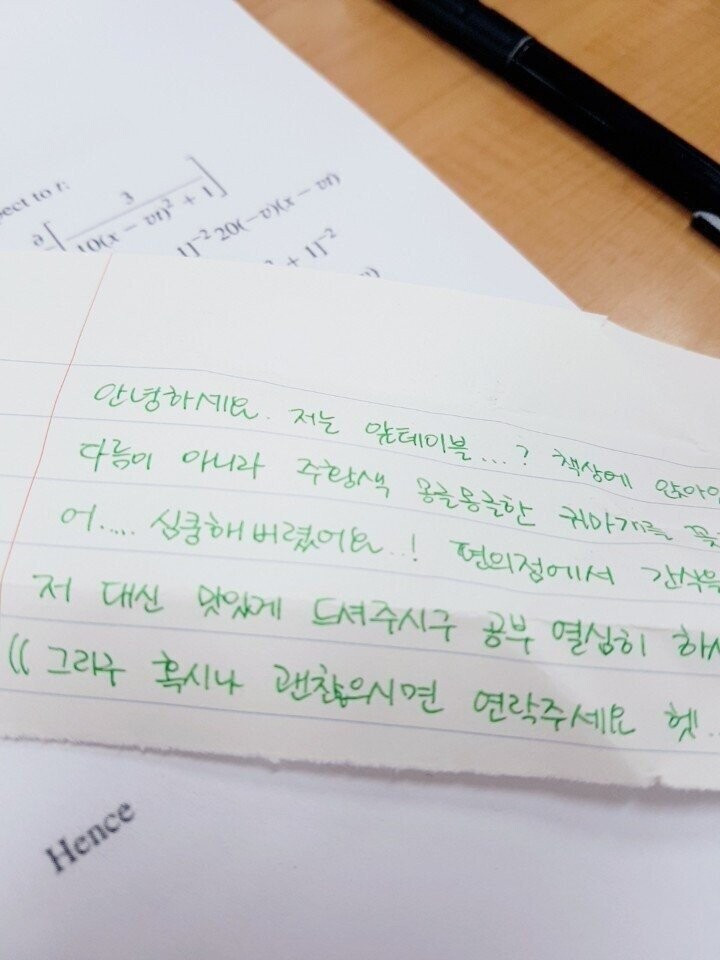 pect to t:
∂[ 3 / 10(x − vt)² + 1 ]
1]⁻² 20(−v)(x − vt)
+ 1]⁻²
안녕하세요. 저는 앞테이블...? 책상에 앉아
다름이 아니라 주황색 몽글몽글한 귀마개를
어..... 심쿵해버렸어요..! 편의점에서 간식
저 대신 맛있게 드셔주시구 공부 열심히 하
(( 그리구 혹시나 괜찮으시면 연락주세요 헷..
Hence